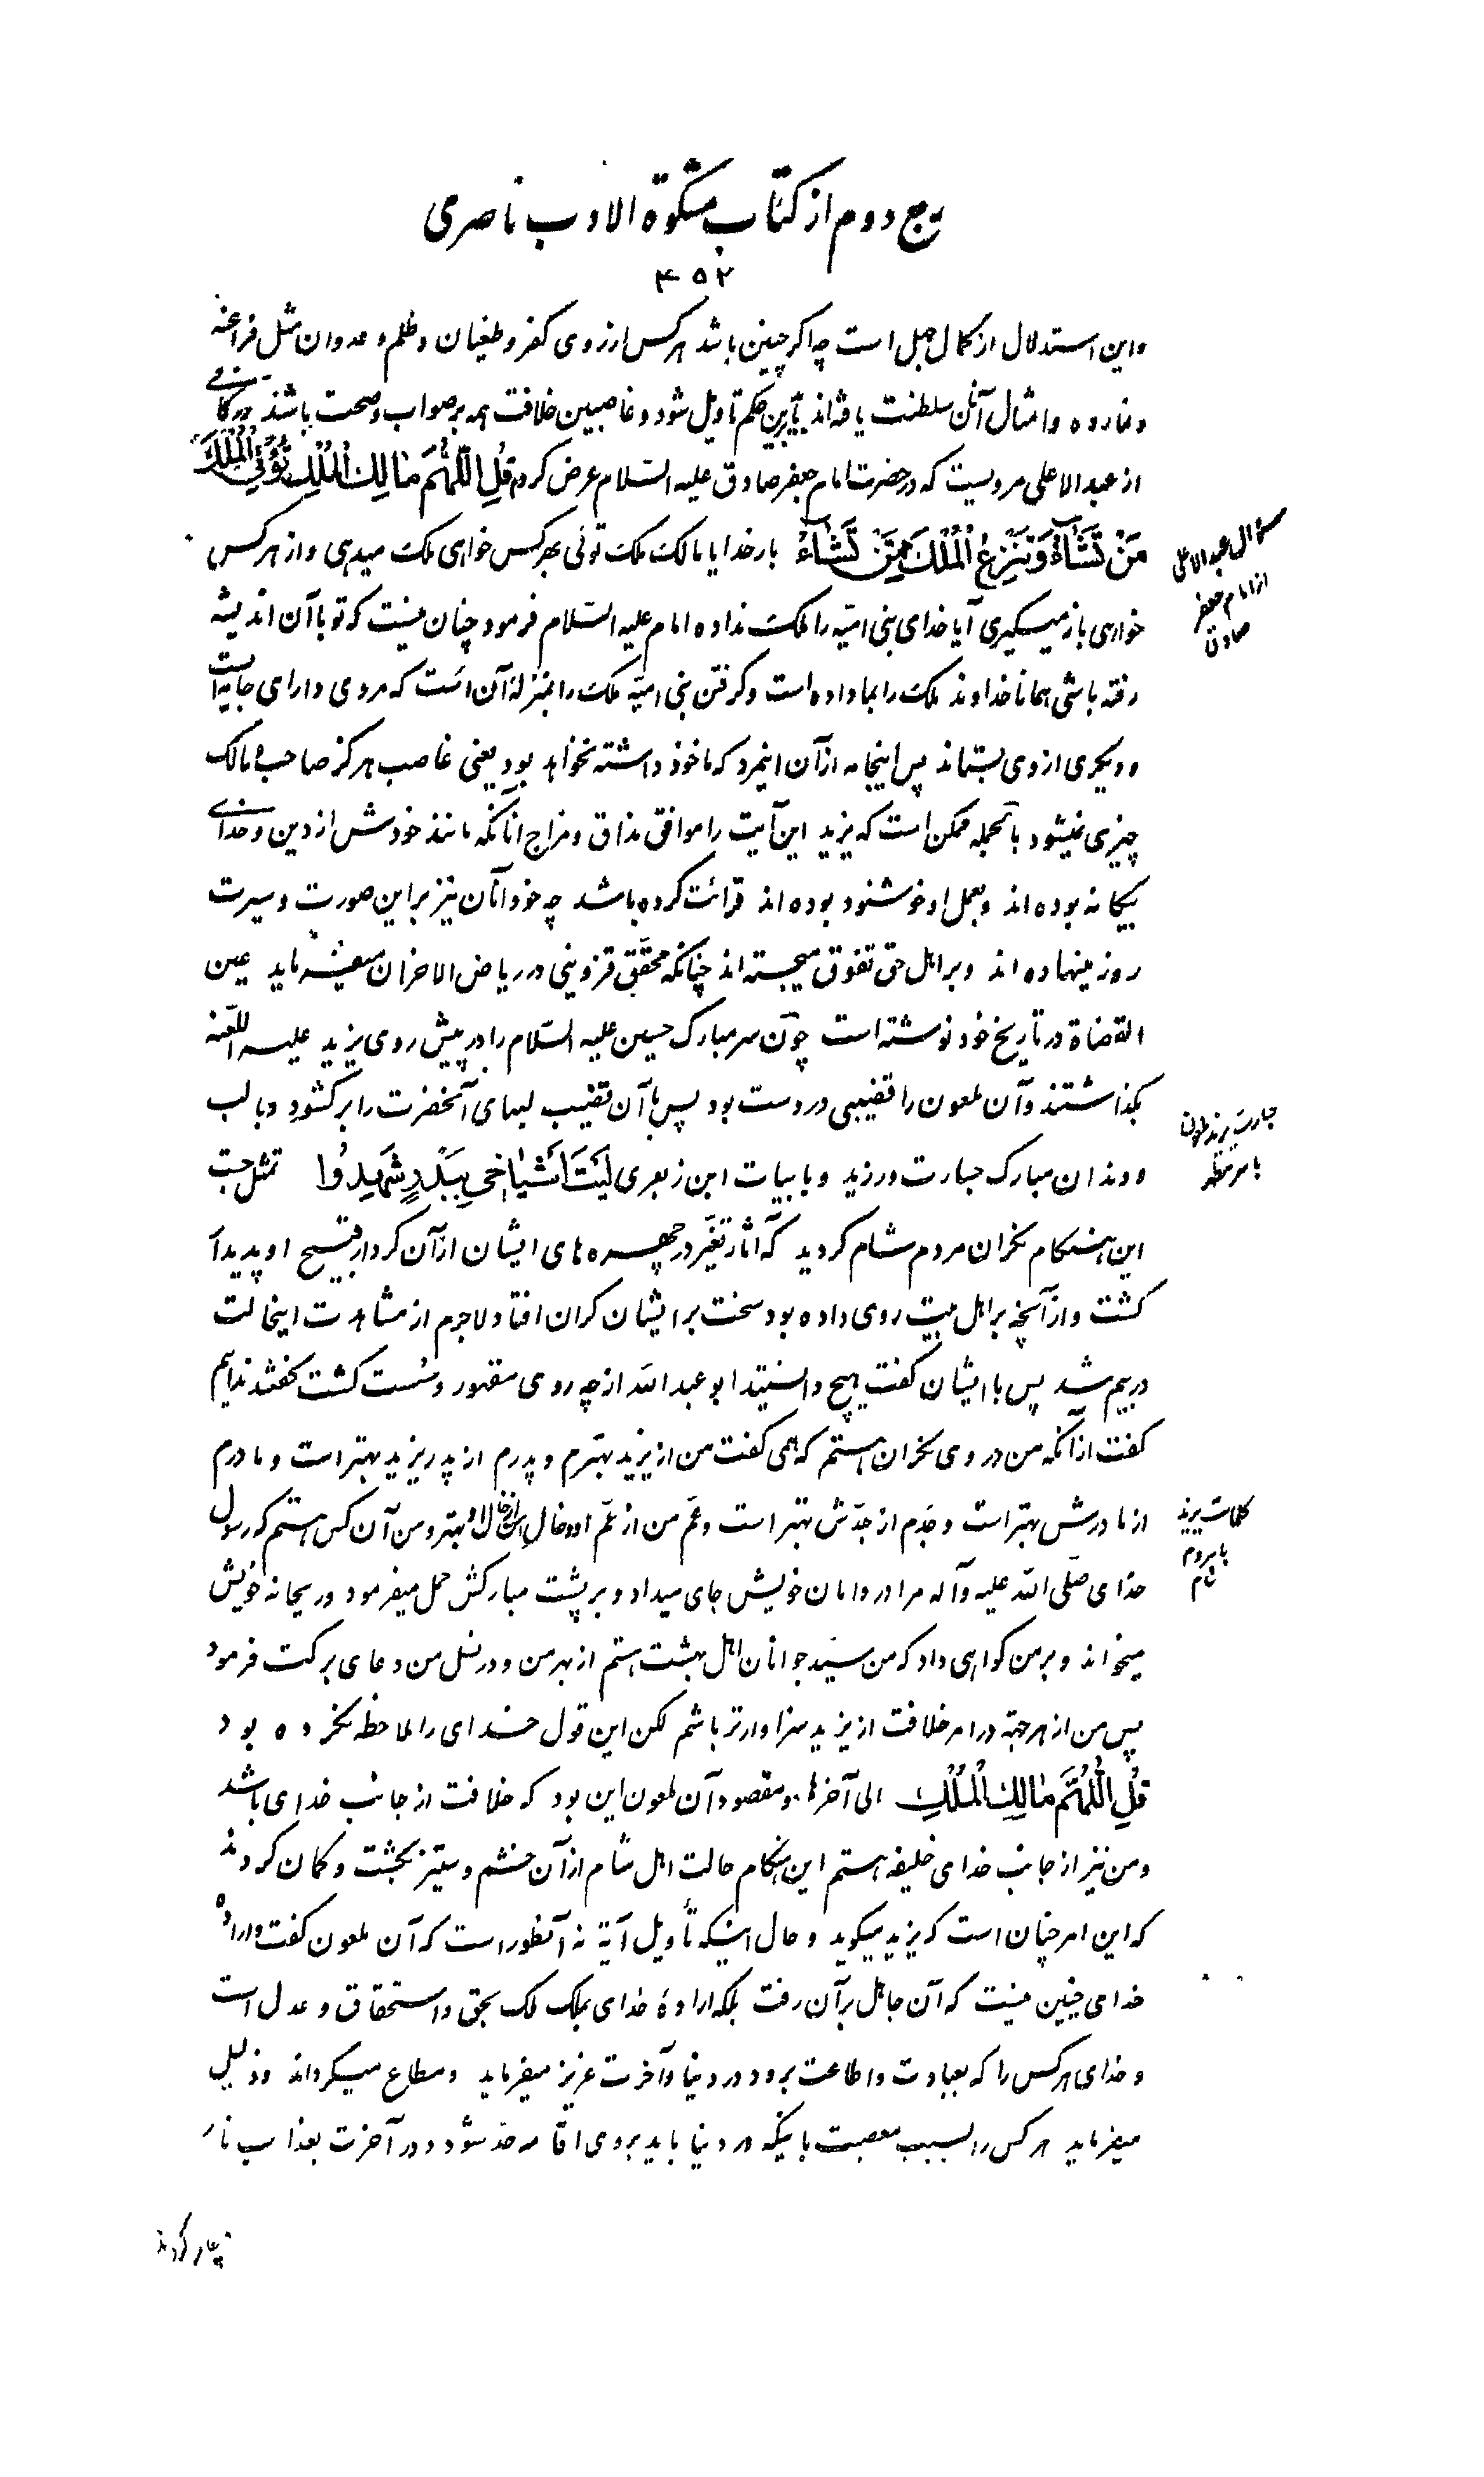 ربع دوم از کتاب مشکوة الادب ناصری
۴۵۲
واین استدلال از کمال جهل است چه اکر چنین باشد هرکس از روی کفر و طغیان و ظلم و عدوان مثل فراعنه
ونمارده وامثال آنان سلطنت یافته‌اند باین حکم تاویل شود و غاصبین خلافت همه بر صواب وصحت باشند در کافی
از عبد الاعلی مرویست که در حضرت امام جعفر صادق علیه السّلام عرض کردم قُلِ اللّٰهُمَّ مٰالِكَ الْمُلْكِ تُؤْتِي الْمُلْكَ
مَنْ تَشٰاءُ وَتَنْزِعُ الْمُلْكَ مِمَّنْ تَشٰاءُ بار خدایا مالک ملک توئی بهر کس خواهی ملک میدهی و از هر کس
خواهی باز میکیری آیا خدای بنی امیّه را ملک نداده امام علیه السّلام فرمود چنان نیست که تو با آن اندیشه
رفته باشی همانا خداوند ملک را بما داده است وکرفتن بنی امیّه ملک را بمنزلهٔ آن است که مردی دارای جامه‌ایست
و دیکری از وی بستاند پس اینجامه از آن اینمرد که ماخوذ داشته نخواهد بود یعنی غاصب هرکز صاحب و مالک
چیزی نمیشود بالجمله ممکن است که یزید این آیت را موافق مذاق و مزاج آنانکه مانند خودش از دین و خدای
بیکانه بوده‌اند و بعمل او خوشنود بوده‌اند قرائت کرده باشد چه خود آنان نیز بر این صورت و سیرت
روز مینهاده‌اند وبر اهل حق تفوق میجسته‌اند چنانکه محقّق قزوینی در ریاض الاحزان میفرماید عین
القضاة در تاریخ خود نوشته است چون سر مبارک حسین علیه السّلام را در پیش روی یزید علیه اللّعنه
بکذاشتند وآن ملعون را قضیبی در دست بود پس با آن قضیب لبهای آنحضرت را بر کشود وبا لب
و دندان مبارک جسارت ورزید و با بیات ابن زبعری لَيْتَ اَشْيٰاخي بِبَدْرٍ شَهِدُوا تمثل جست
این هنکام نکران مردم شام کردید که آثار تغیّر در چهره‌های ایشان از آن کردار قبیح او پدید آ
کشت و از آنچه بر اهل بیت روی داده بود سخت بر ایشان کران افتاد لاجرم از مشاهدت اینحالت
در بیم شد پس با ایشان کفت هیچ دانستید ابو عبد الله از چه روی مقهور و سست کشت کفتند ندانیم
کفت از آنکه من در وی نکران هستم که همی کفت من از یزید بهترم و پدرم از پدر یزید بهتر است و مادرم
از مادرش بهتر است و جدّم از جدّش بهتر است و عمّ من از عمّ او و خال من از خال او بهتر و من آن کس هستم که رسول
خدای صلّی الله علیه وآله مرا در دامان خویش جای میداد و بر پشت مبارکش حمل میفرمود و ریحانه خویش
میخواند و بر من کواهی داد که من سیّد جوانان اهل بهشت هستم از بهر من و در نسل من دعای برکت فرمود
پس من از هر جهة در امر خلافت از یزید سزاوارتر باشم لکن این قول خدای را ملاحظه نکرده بود
قُلِ اللّٰهُمَّ مٰالِكَ الْمُلْكِ الی آخرها و مقصود آن ملعون این بود که خلافت از جانب خدای باشد
ومن نیز از جانب خدای خلیفه هستم این هنکام حالت اهل شام از آن خشم و ستیز بکشت و کمان کردند
که این امر چنان است که یزید میکوید و حال اینکه تأویل آیة نه آنطور است که آن ملعون کفت و اراده
خدای چنین نیست که آن جاهل بر آن رفت بلکه ارادهٔ خدای بملک ملک بحق و استحقاق و عدل است
و خدای هر کس را که بعبادت و اطاعت برود در دنیا وآخرت عزیز میفرماید و مطاع میکرداند و ذلیل
میفرماید هر کس را بسبب معصیت باینکه در دنیا باید بروی اقامه حد شود و در آخرت بعذاب نار
سؤال عبد الاعلی
از امام جعفر
صادق
جسارت یزید ملعون
با سر مطهر
کلمات یزید
با مردم
شام